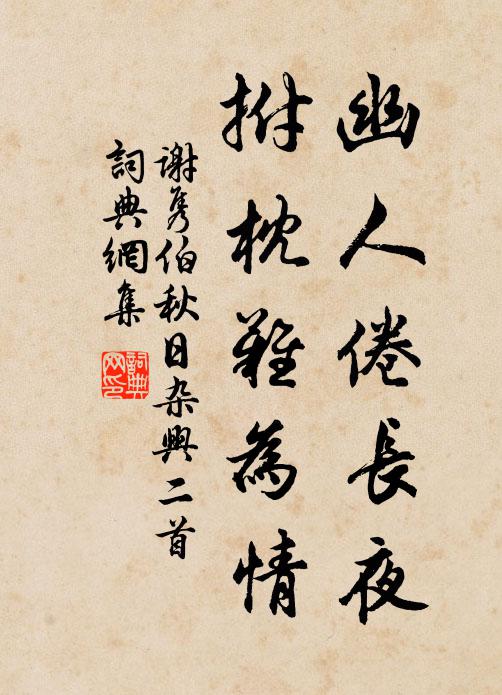 幽人倦長夜
拊枕難為情
謝隽伯秋日杂興二首
詞典網集
詞典網印